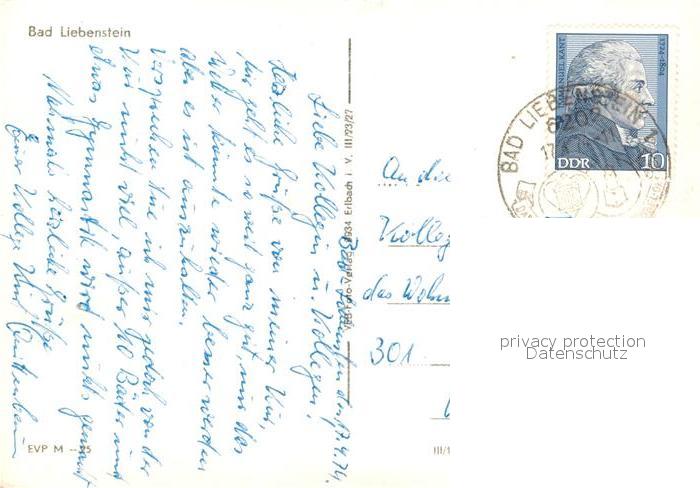 Bad Liebenstein
Bad Liebenstein, den 17.4.74.
Liebe Kollegin u. Kollegen!
Herzliche Grüße von meiner Kur,
mir geht es so weit ganz gut, nur das
Wetter könnte wieder besser werden
aber es ist auszuhalten.
Versprechen tue ich mir jedoch von der
Kur nicht viel außer 10 Bäder und
etwas Gymnastik wird nichts gemacht
Nochmals herzliche Grüße
Euer Kolleg Kurt
EVP M -,25
VEB Foto-Verlag 9934 Erlbach i. V. III/23/27
An die
Kolleg
das Wohn
301
III/1
IMMANUEL KANT
1724-1804
DDR
10
BAD LIEBENSTEIN 1
6202
17.4.
privacy protection
Datenschutz